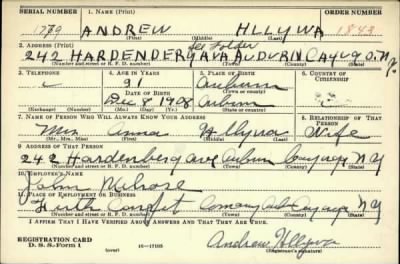 SERIAL NUMBER 1. NAME (Print) ORDER NUMBER
1779 ANDREW HLLYWA 1843
(First) (Middle) (Last)
2. ADDRESS (Print) See Folder
242 HARDENDERG AVA AUDURN CAYUGO. N.Y.
(Number and street or R. F. D. number) (Town) (County) (State)
3. TELEPHONE 4. AGE IN YEARS 5. PLACE OF BIRTH 6. COUNTRY OF CITIZENSHIP
Auburn
DATE OF BIRTH (Town or county)
Dec 8 1908 Auburn
(Exchange) (Number) (Mo.) (Day) (Yr.) (State or country)
7. NAME OF PERSON WHO WILL ALWAYS KNOW YOUR ADDRESS 8. RELATIONSHIP OF THAT PERSON
Mrs Anna Hllywa Wife
(Mr., Mrs., Miss) (First) (Middle) (Last)
9. ADDRESS OF THAT PERSON
242 Hardenberg ave Auburn Cayuga N Y
(Number and street or R. F. D. number) (Town) (County) (State)
10. EMPLOYER'S NAME
John Melrose
11. PLACE OF EMPLOYMENT OR BUSINESS
Firth Carpet Company Cayuga N Y
(Number and street or R. F. D. number) (Town) (County) (State)
I AFFIRM THAT I HAVE VERIFIED ABOVE ANSWERS AND THAT THEY ARE TRUE.
REGISTRATION CARD
D. S. S. Form 1 (over) 16—17105 Andrew Hllywa
(Registrant's signature)